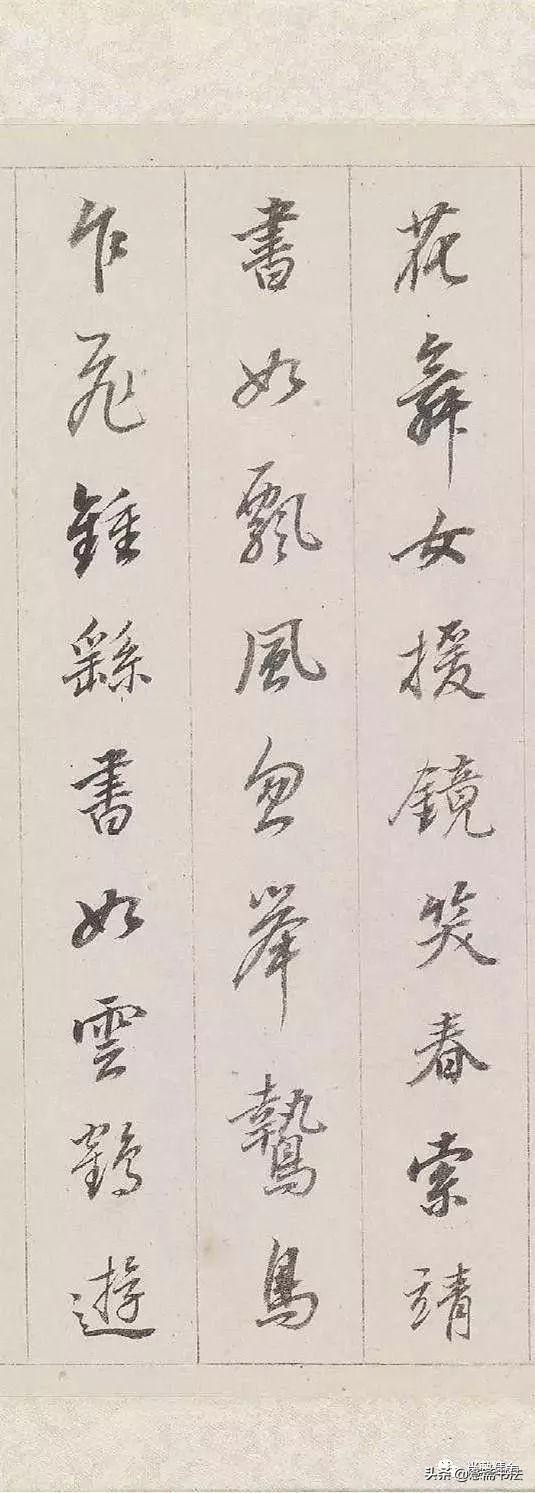 花舞女援鏡笑春索靖
書如飄風忽舉鷙鳥
乍飛鍾繇書如雲鶴遊
头条@慈斋书法